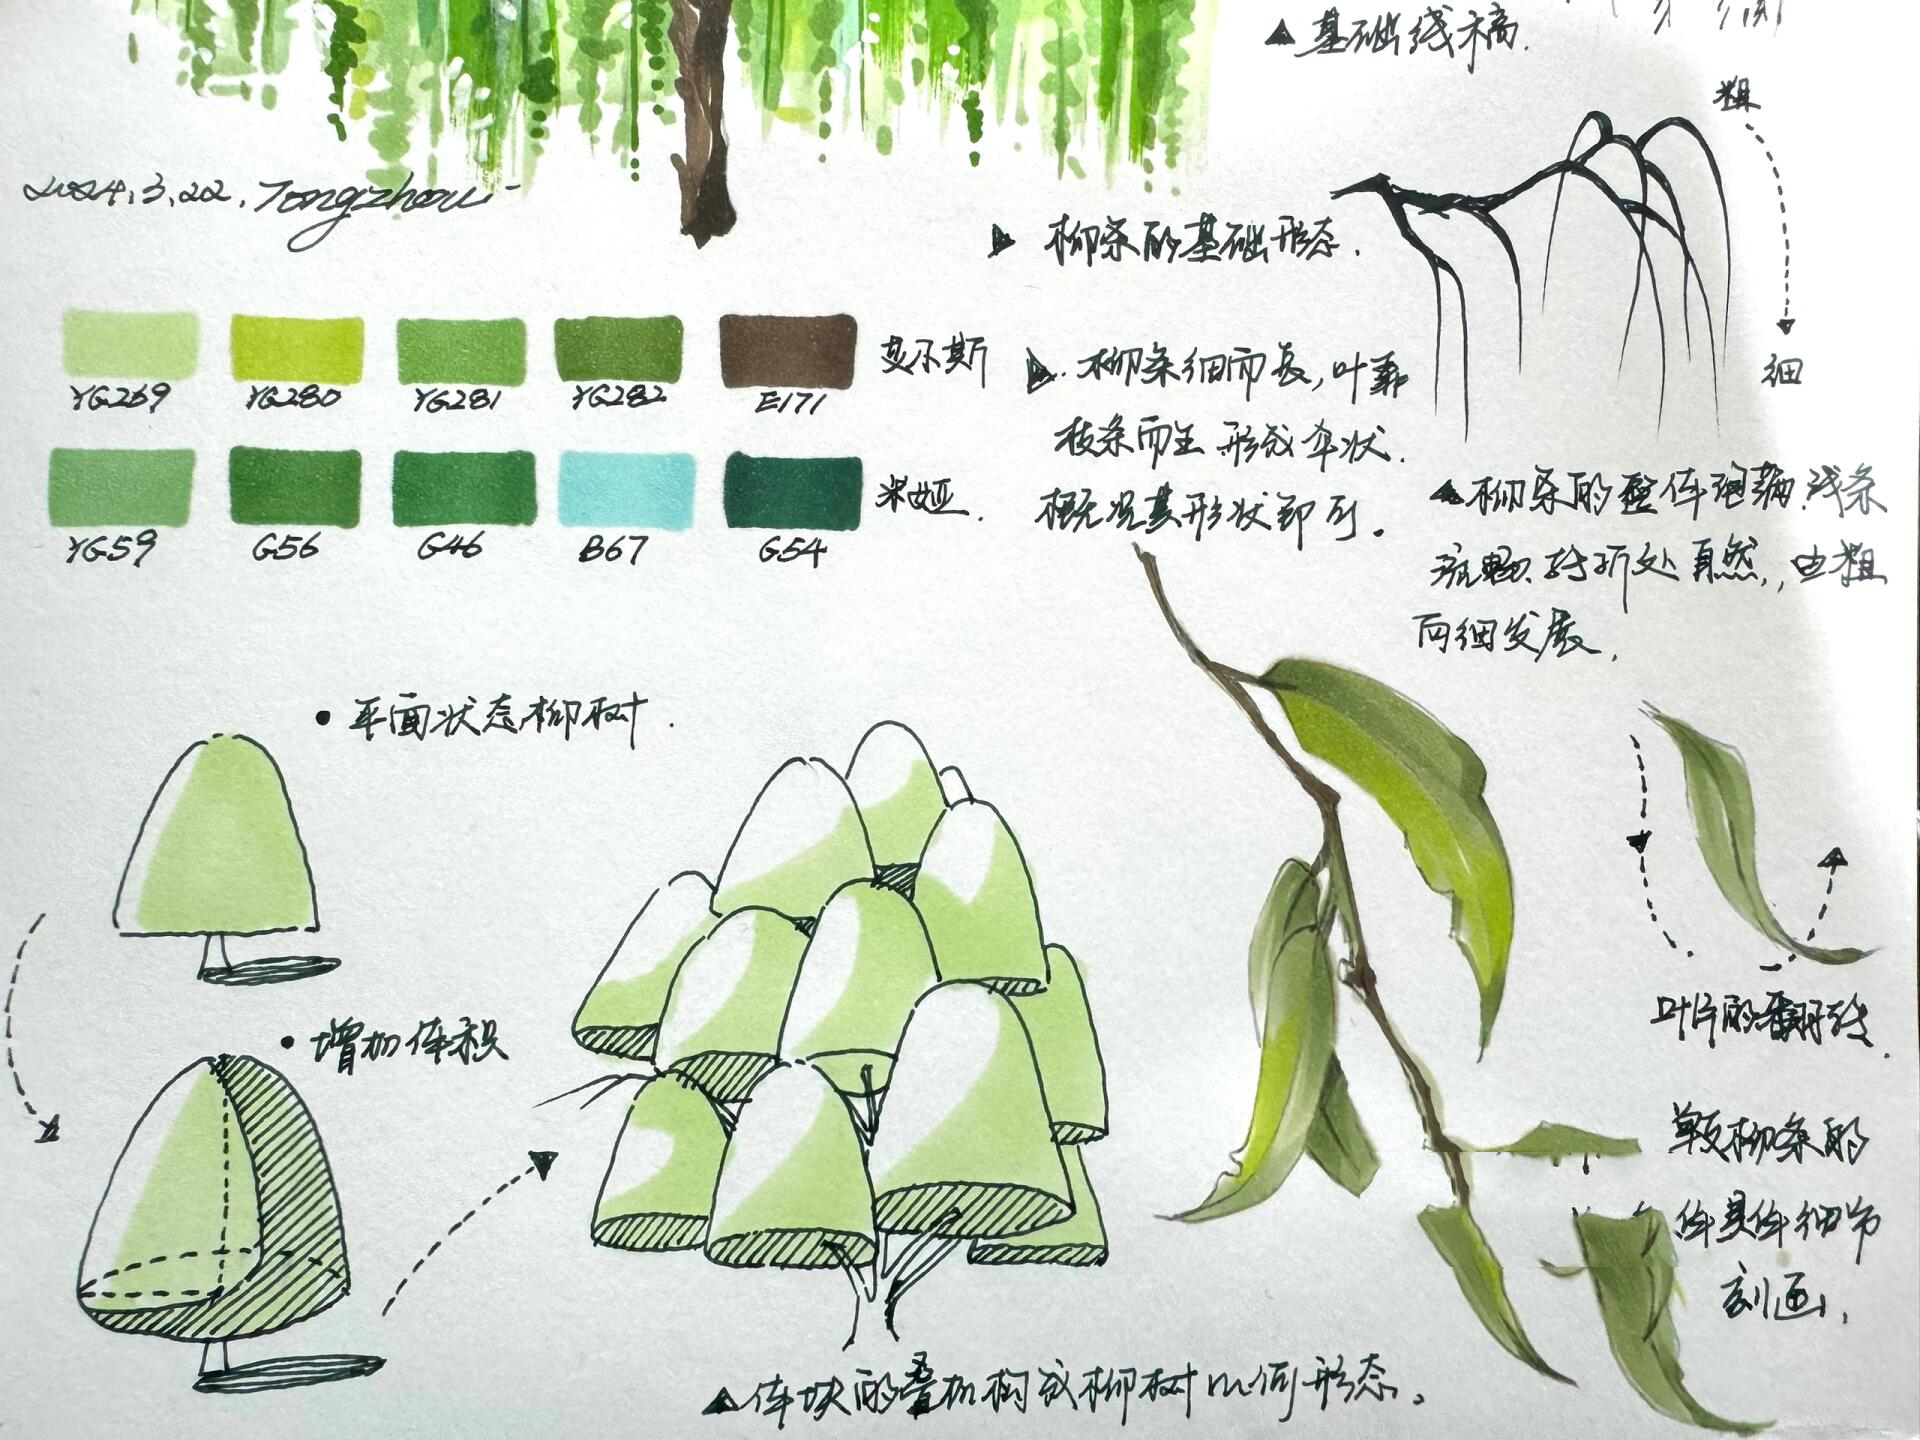 ▲基础线稿.
粗
2024.3.22. Tongzhou
▶ 柳条的基础形态.
YG269 YG280 YG281 YG282 E171
艾尔斯
▶. 柳条细而长,叶靠
枝条而生 形成伞状.
概况其形状即可。
细
YG59 G56 G46 B67 G54
米娅.
▲柳条的整体 线条
流畅.转折处自然,由粗
向细发展.
• 平面状态柳树.
• 增加体积
叶片的翻转.
单支柳条的
体具体细节
刻画.
▲体块的叠加构成柳树几何形态.